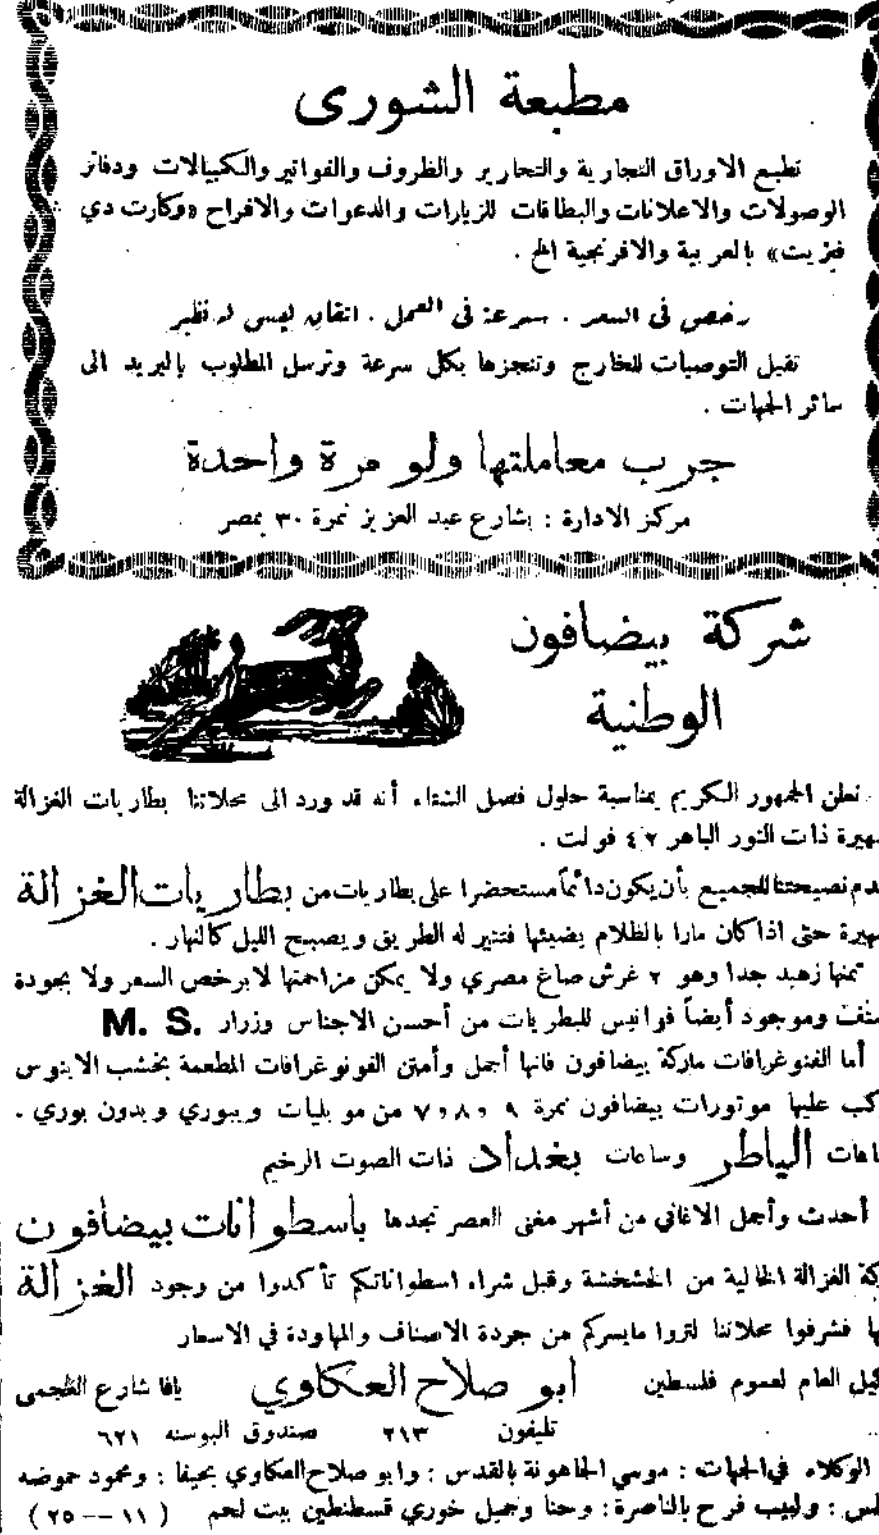 مطبعة الشورى
تطبع الاوراق التجارية والتحارير والظروف والفواتير والكمبيالات ودفاتر
الوصولات والاعلانات والبطاقات للزيارات والدعوات والافراح «وكارت دي
فيزيت» بالعربية والافرنجية الخ .
رخص في السعر . سرعة في العمل . اتقان ليس له نظير
تقبل التوصيات للخارج وتنجزها بكل سرعة وترسل المطلوب بالبريد الى
سائر الجهات .
جرب معاملتها ولو مرة واحدة
مركز الادارة : بشارع عبد العزيز نمرة ٣٠ بمصر
شركة بيضافون
الوطنية
نعلن الجمهور الكريم بمناسبة حلول فصل الشتاء أنه قد ورد الى محلاتنا بطاريات الغزالة
هيرة ذات النور الباهر ٤٫٢ فولت .
دم نصيحتنا للجميع بأن يكون دائماً مستحضرا على بطاريات من بطاريات الغزالة
هيرة حتى اذا كان مارا بالظلام يضيئها فتنير له الطريق ويصبح الليل كالنهار .
ثمنها زهيد جدا وهو ٢ غرش صاغ مصري ولا يمكن مزاحمتها لا برخص السعر ولا بجودة
صنف وموجود أيضاً فوانيس للبطريات من أحسن الاجناس وزرار M. S.
أما الفنوغرافات ماركة بيضافون فانها أجمل وأمتن الفونوغرافات المطعمة بخشب الابنوس
كب عليها موتورات بيضافون نمرة ٩ و٨ و٧ من موبليات وببوري وبدون بوري .
اعات الياطر وساعات بغداد ذات الصوت الرخيم
أحدث وأجمل الاغاني من أشهر مغني العصر تجدها باسطوانات بيضافون
كة الغزالة الخالية من الخشخشة وقبل شراء اسطواناتكم تأكدوا من وجود الغزالة
ها فشرفوا محلاتنا لتروا مايسركم من جودة الاصناف والمهاودة في الاسعار
كيل العام لعموم فلسطين أبو صلاح العكاوي يافا شارع العجمى
تليفون ٢١٣ صندوق البوسته ٦٢١
الوكلاء في الجهات : موسي الجاهونة بالقدس : وابو صلاح العكاوي بحيفا : ومحمود حموضه
لس : ولبيب فرح بالناصرة : وحنا وجميل خوري قسطنطين بيت لحم ( ١١ -- ٢٥ )